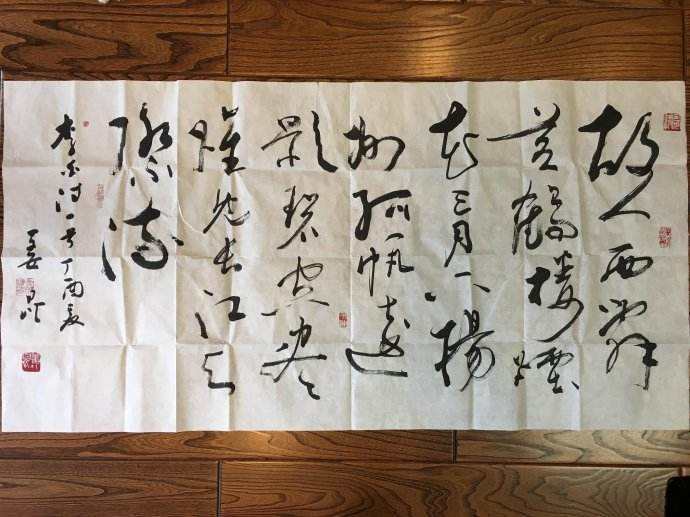 故人西辞
黄鹤楼煙
花三月下揚
州孤帆远
影碧空尽
惟见长江天
际流
李白诗一首丁酉夏